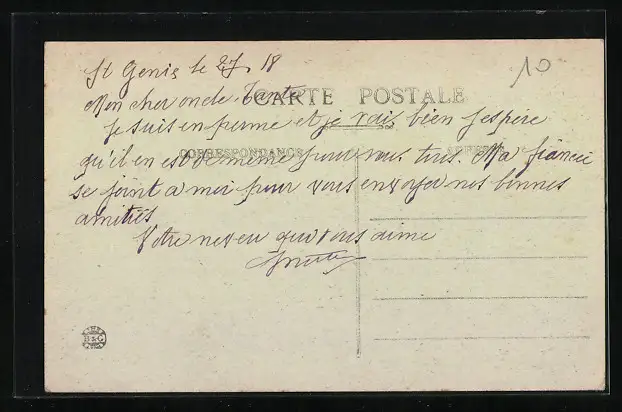 St Genis le 27. 18
10
Mon cher oncle Tante
CARTE POSTALE
Je suis en perme et je vais bien J espère
CORRESPONDANCE
ADRESSE
qu'il en est de meme pour vous tous. Ma fiancée
se joint a moi pour vous envoyer nos bonnes
amitiés
Votre neveu qui vous aime
B & G